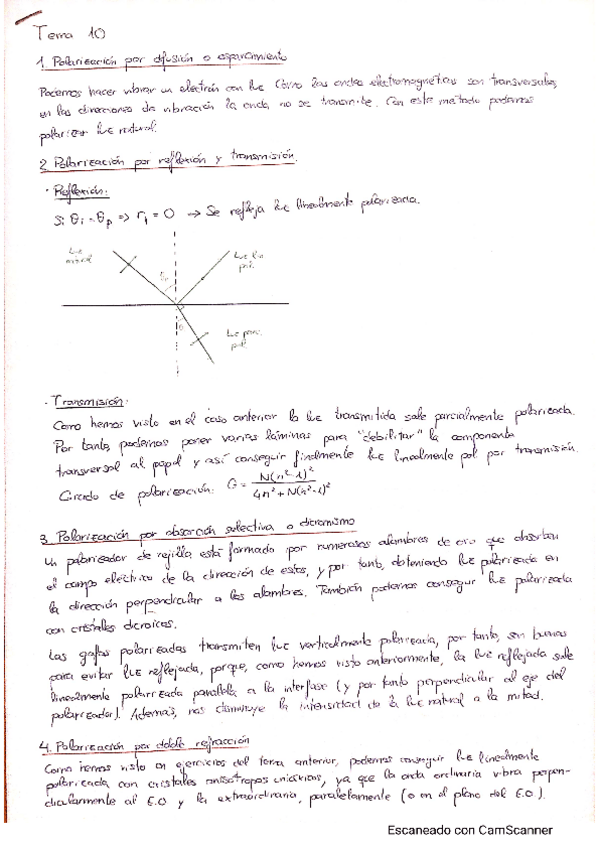 Tema 10
1. Polarización por difusión o esparcimiento
Podemos hacer vibrar un electrón con luz. Como las ondas electromagnéticas son transversales,
en las direcciones de vibración la onda no se transmite. Con este método podemos
polarizar luz natural.
2. Polarización por reflexión y transmisión.
· Reflexión:
Si θi = θp => r∥ = 0 → Se refleja luz linealmente polarizada.
Luz
natural
Luz lin
pol.
θp
Luz parc.
pol.
· Transmisión:
Como hemos visto en el caso anterior la luz transmitida sale parcialmente polarizada.
Por tanto, podemos poner varias láminas para "debilitar" la componente
transversal al papel y así conseguir finalmente luz linealmente pol. por transmisión.
Grado de polarización: G = N(n²-1)² / 4n² + N(n²-1)²
3. Polarización por absorción selectiva o dicroísmo
Un polarizador de rejilla está formado por numerosos alambres de oro que absorben
el campo eléctrico de la dirección de estos, y por tanto, obteniendo luz polarizada en
la dirección perpendicular a los alambres. También podemos conseguir luz polarizada
con cristales dicroicos.
Las gafas polarizadas transmiten luz verticalmente polarizada, por tanto, son buenas
para evitar luz reflejada, porque, como hemos visto anteriormente, la luz reflejada sale
linealmente polarizada paralela a la interfase (y por tanto perpendicular al eje del
polarizador). Además, nos disminuye la intensidad de la luz natural a la mitad.
4. Polarización por doble refracción
Como hemos visto en ejercicios del tema anterior, podemos conseguir luz linealmente
polarizada con cristales anisótropos uniáxicos, ya que la onda ordinaria vibra perpen-
dicularmente al E.O y la extraordinaria, paralelamente (o en el plano del E.O).
Escaneado con CamScanner